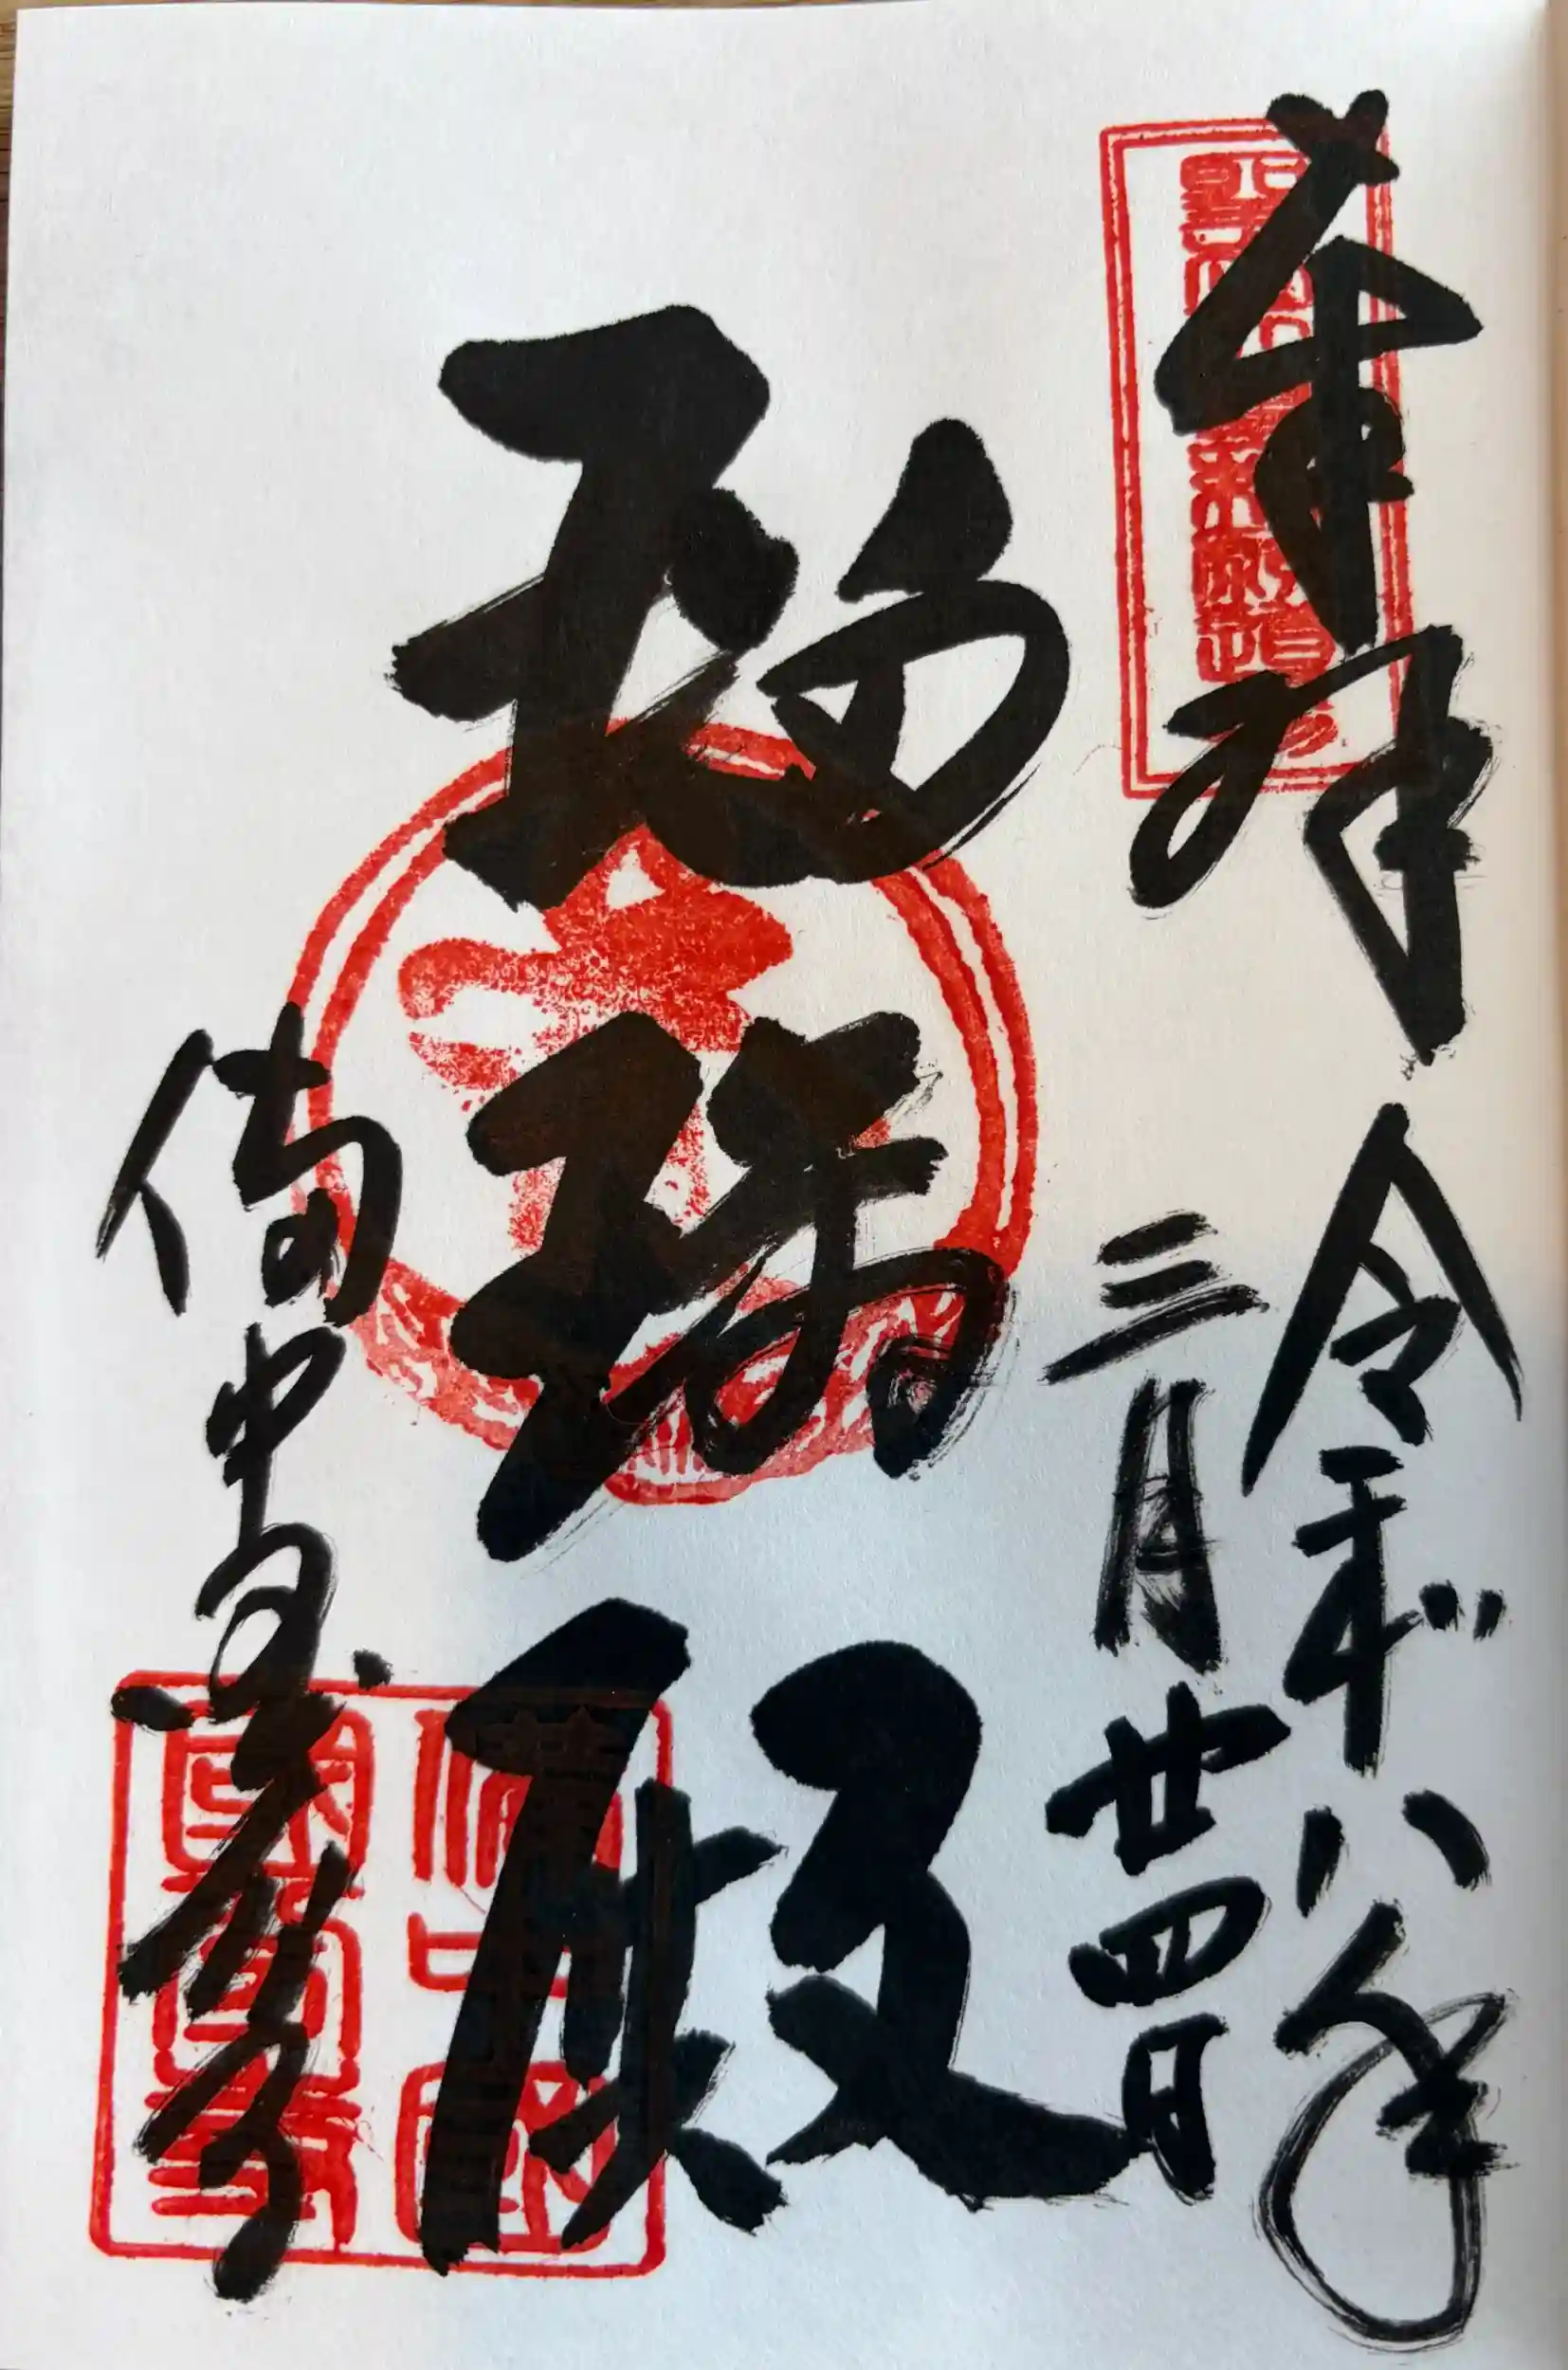 奉拝
令和八年
三月廿四日
瑠璃殿
備中国分寺
備中國
國分寺